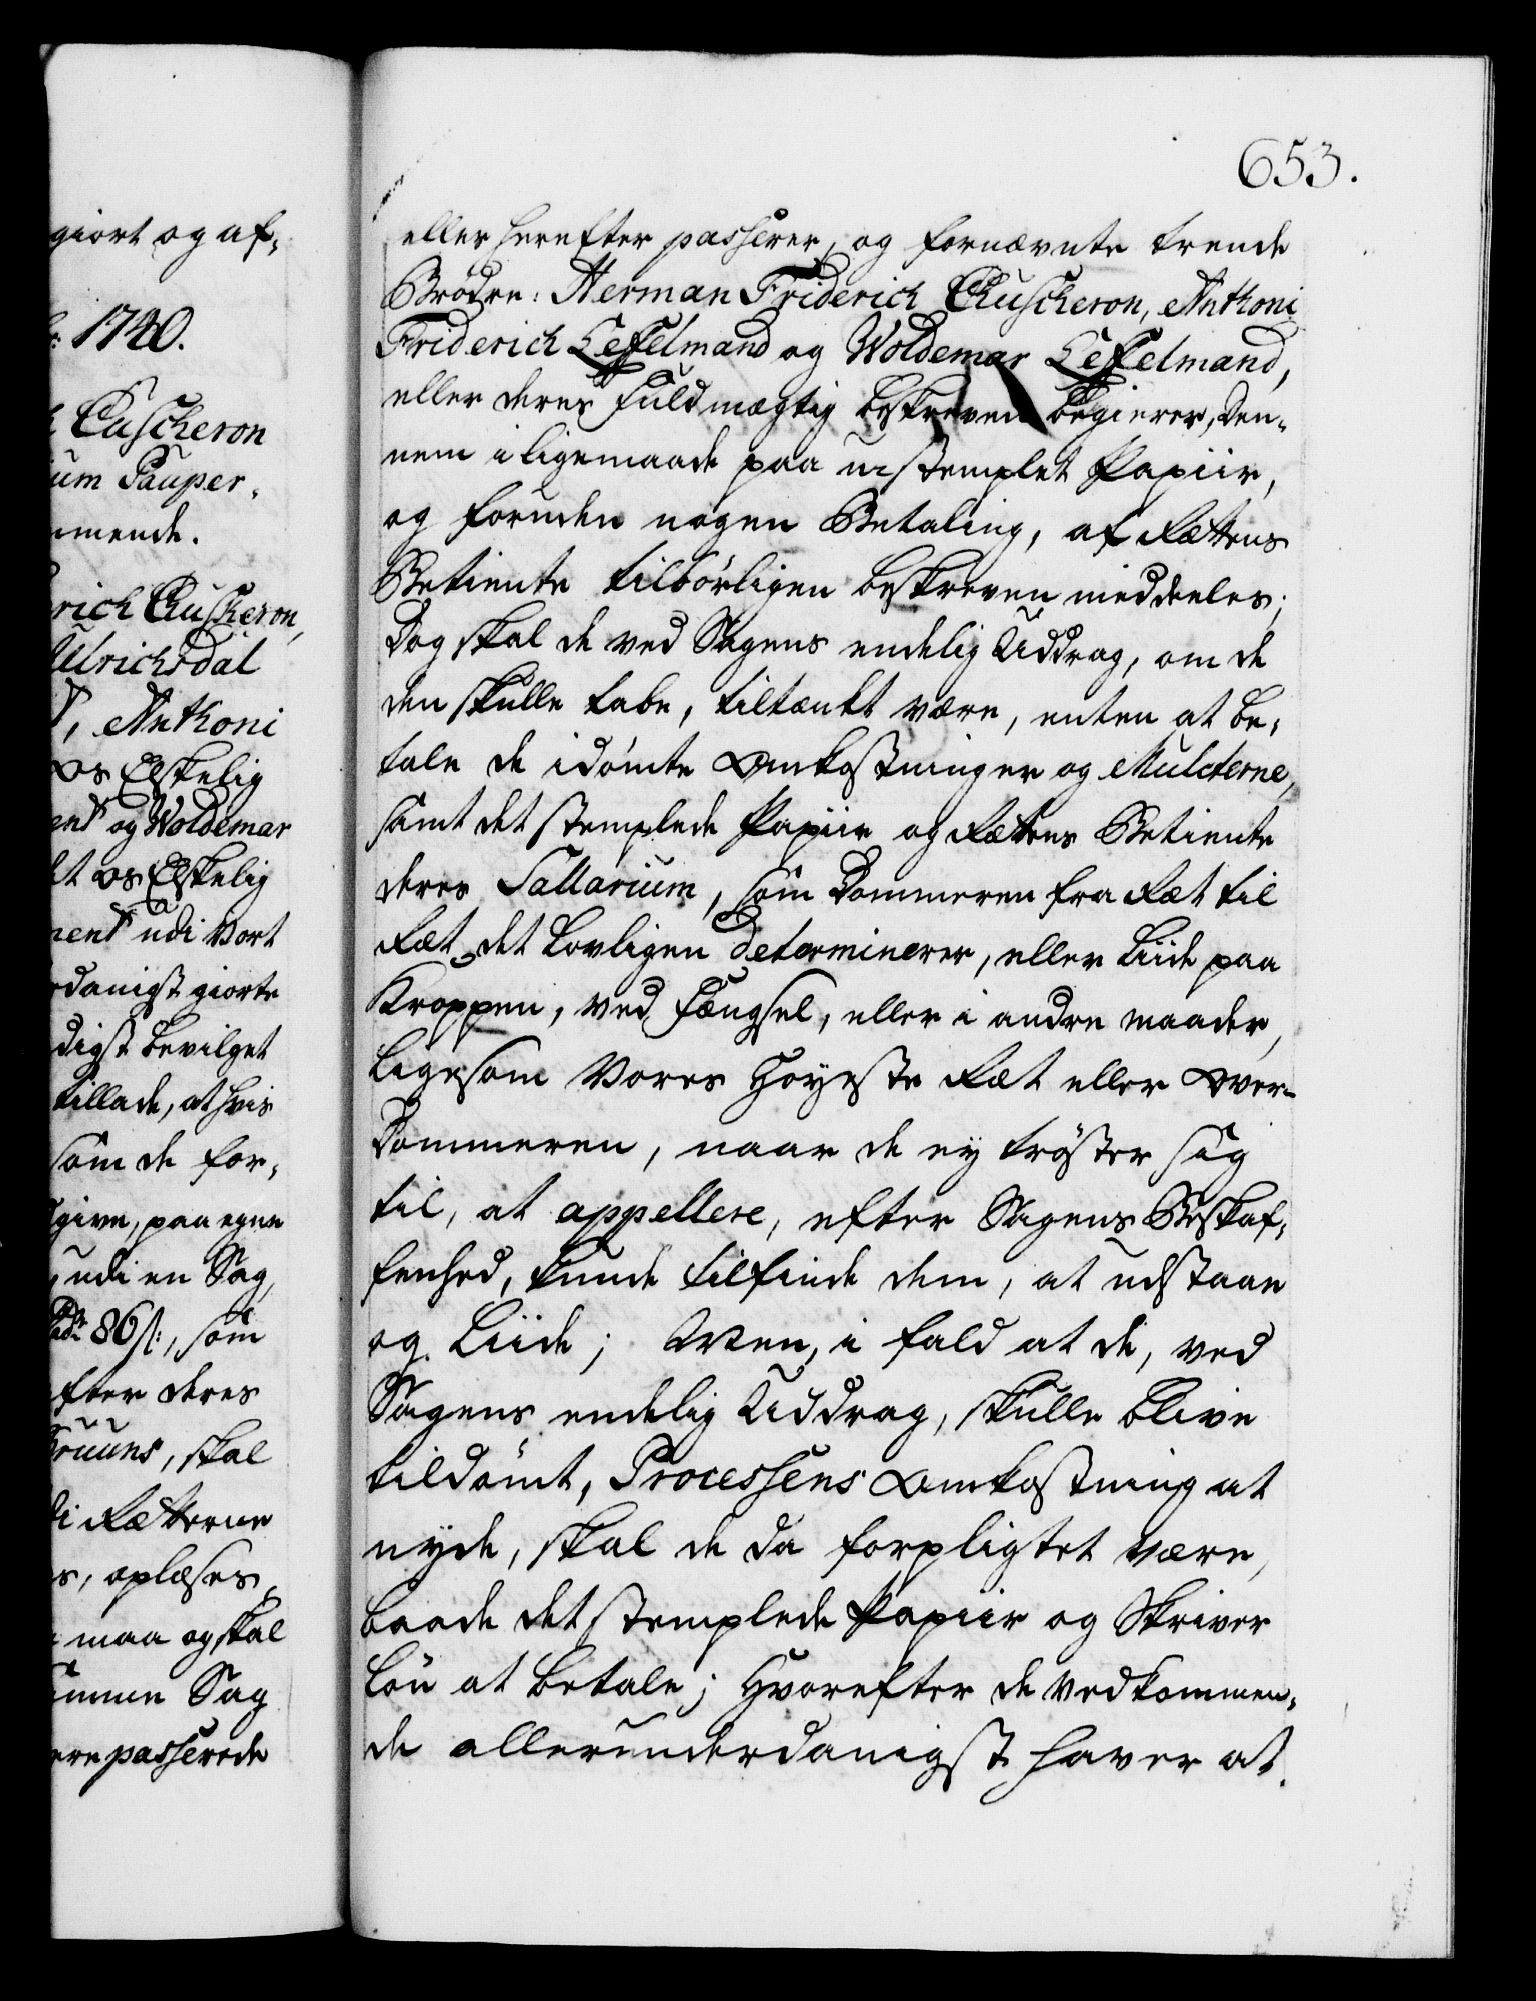 giort og af,
1740.
Cuscheron
um Pauper,
mende.
rich Chuscheron,
Ulrichsdal
Anthoni
os Elskelig
og Woldemar
t os Elskelig
ment udi Vort
danigst giorte
digst bevilget
tillade, at hvis
som de for,
give, paa egne
udi en Sag,
86 s:, som
fter deres
skal
i Rætterne
s, oplæses,
maa og skal
Sag
ere passerede
653.
eller herefter passerer, og fornævnte trende
Brödre: Herman Friderich Chuscheron, Anthoni
Friderich Leffelmand og Woldemar Leffelmand,
eller deres Fuldmægtig beskreven begierer, Den-
nem i ligemaade paa u-stemplet Papiir,
og foruden nogen Betaling, af Rættens
Betiente tilbörligen beskreven meddeeles;
Dog skal de ved Sagens endelig Uddrag, om de
den skulle tabe, tiltænkt være, enten at be,
tale de idömte Omkostninger og Mulcterne,
samt det stemplede Papiir og Rættens Betiente
deres Sallarium, som Dommeren fra Ræt til
Ræt det Lovligen determinerer, eller Liide paa
Kroppen, ved Fængsel, eller i andre maader,
Ligesom Vores Höyeste Ræt eller Over-
Dommeren, naar de ey tröster sig
til, at appellere, efter Sagens Beskaf,
fenhed, kunde tilfinde dem, at udstaae
og Liide; Men, i fald at de, ved
Sagens endelig Uddrag, skulle blive
tildömt, Processens Omkostning at
nyde, skal de da forpligtet være,
baade det stemplede Papiir og Skriver
Lön at betale; Hvorefter de vedkommen,
de allerunderdanigst haver at